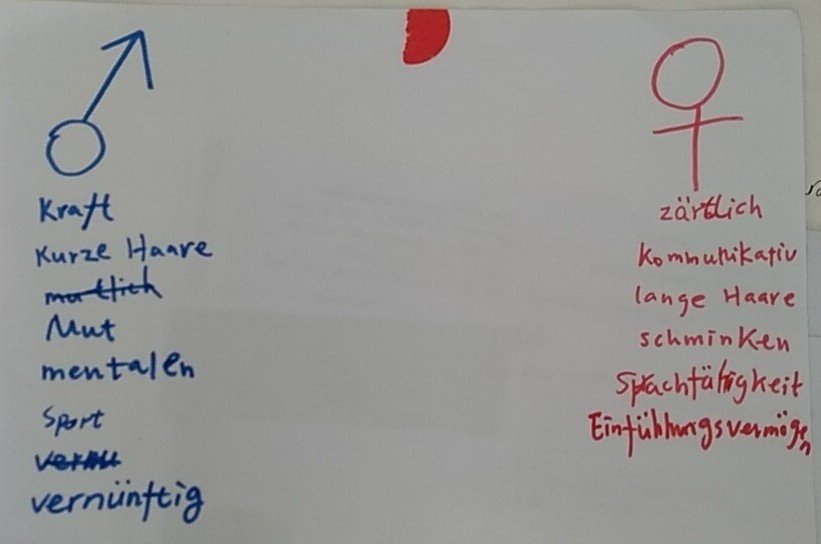 Kraft
Kurze Haare
mutlich
Mut
mentalen
Sport
vernu
vernünftig
zärtlich
kommunikativ
lange Haare
schminken
Sprachfähigkeit
Einfühlungsvermögen